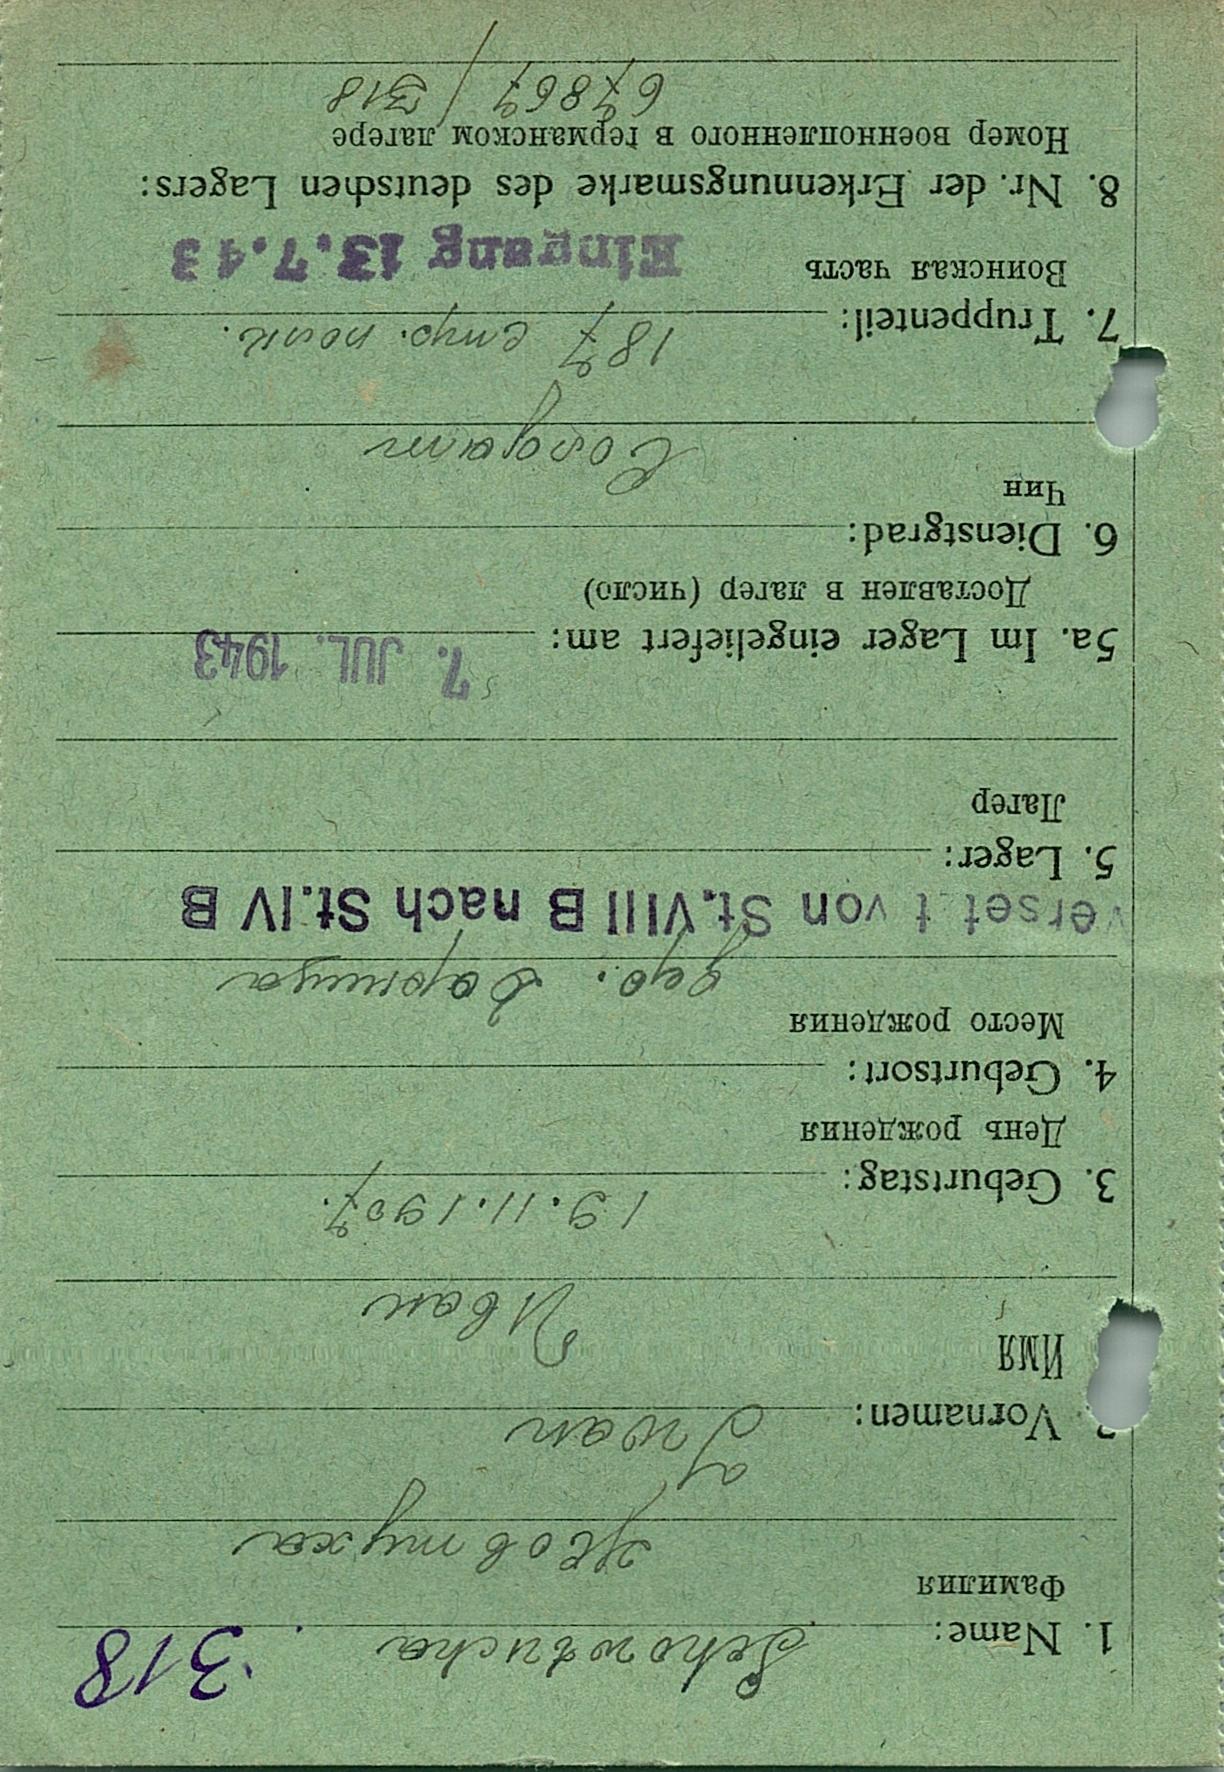 318
1. Name: Schowtucha
Фамилия
Жовтуха
2. Vornamen: Iwan
Имя
Иван
3. Geburtstag: 19.11.1907.
День рождения
4. Geburtsort:
Место рождения
дер.
verset t von St.VIII B nach St.IV B
5. Lager:
Лагер
5a. Im Lager eingeliefert am: 7. JUL. 1943
Доставлен в лагер (число)
6. Dienstgrad:
Чин
Солдат
7. Truppenteil: 187 стр. полк.
Воинская часть Eingang 13.7.43
8. Nr. der Erkennungsmarke des deutschen Lagers:
Номер военнопленного в германском лагере
67867 / 318